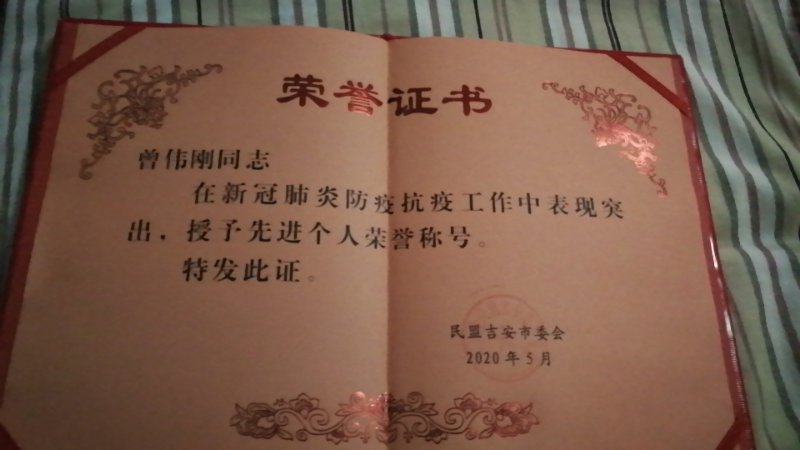 荣誉证书
曾伟刚同志
在新冠肺炎防疫抗疫工作中表现突
出，授予先进个人荣誉称号。
特发此证。
民盟吉安市委会
2020年5月